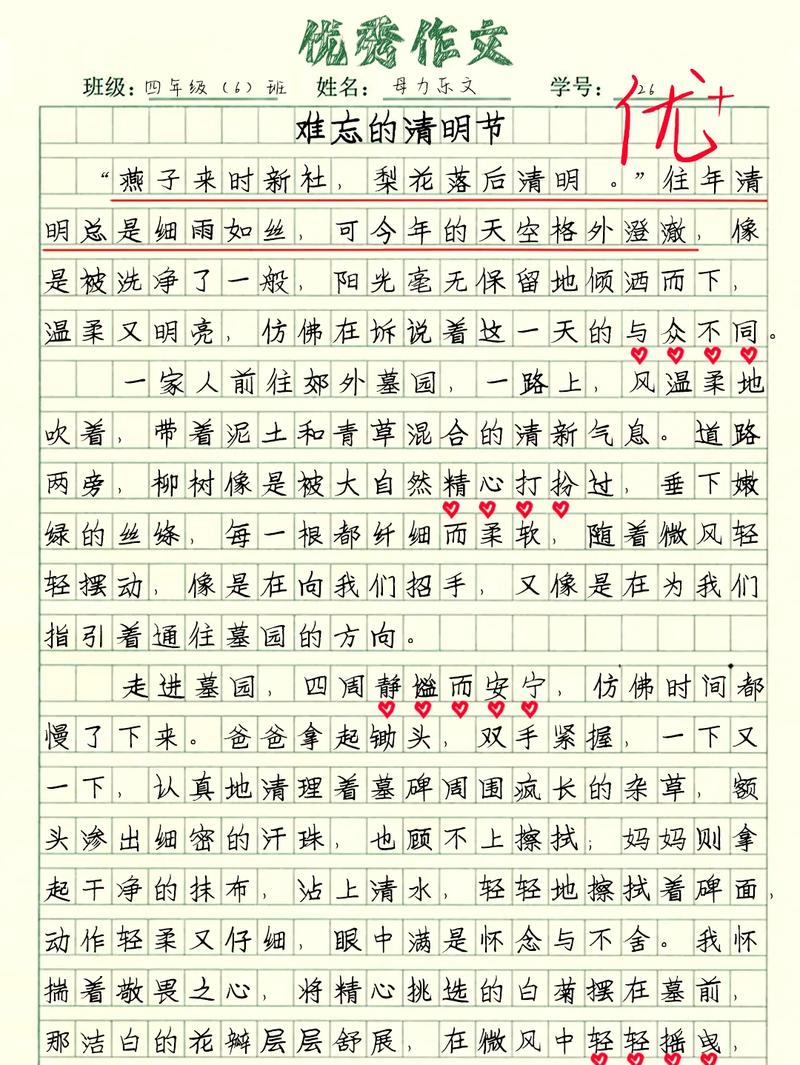 优秀作文
班级: 四年级(6)班 姓名: 母力乐文 学号: 26
优+
难忘的清明节
“燕子来时新社，梨花落后清明。”往年清
明总是细雨如丝，可今年的天空格外澄澈，像
是被洗净了一般，阳光毫无保留地倾洒而下，
温柔又明亮，仿佛在诉说着这一天的与众不同。
一家人前往郊外墓园，一路上，风温柔地
吹着，带着泥土和青草混合的清新气息。道路
两旁，柳树像是被大自然精心打扮过，垂下嫩
绿的丝绦，每一根都纤细而柔软，随着微风轻
轻摆动，像是在向我们招手，又像是在为我们
指引着通往墓园的方向。
走进墓园，四周静谧而安宁，仿佛时间都
慢了下来。爸爸拿起锄头，双手紧握，一下又
一下，认真地清理着墓碑周围疯长的杂草，额
头渗出细密的汗珠，也顾不上擦拭；妈妈则拿
起干净的抹布，沾上清水，轻轻地擦拭着碑面，
动作轻柔又仔细，眼中满是怀念与不舍。我怀
揣着敬畏之心，将精心挑选的白菊摆在墓前，
那洁白的花瓣层层舒展，在微风中轻轻摇曳，